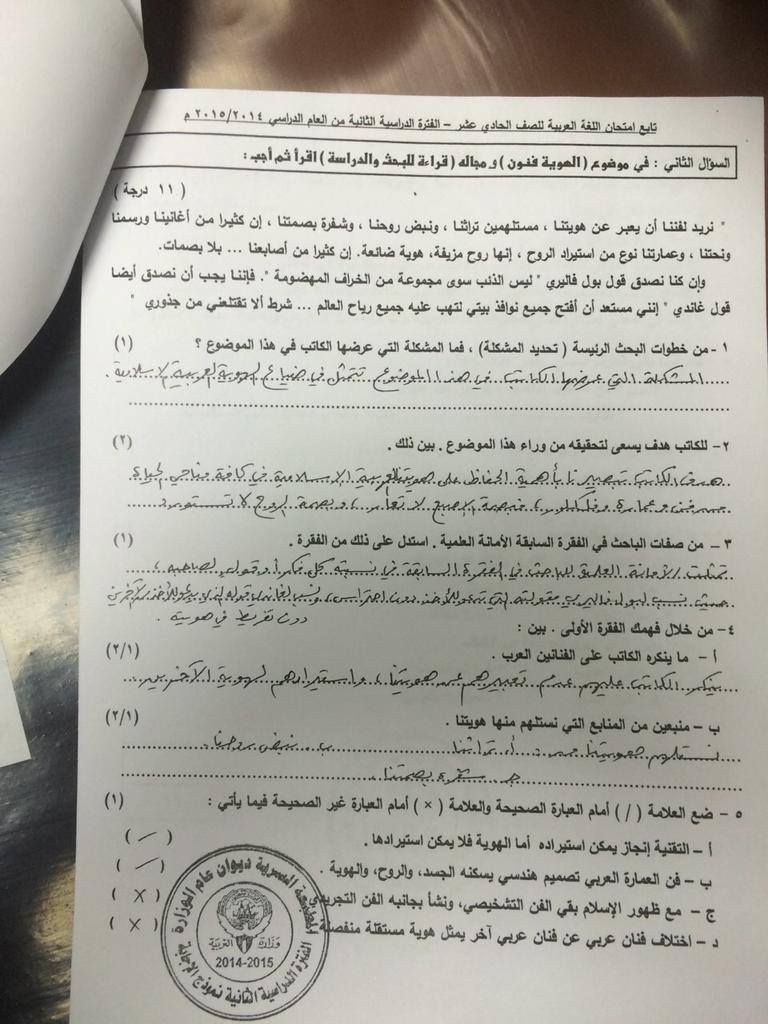 تابع امتحان اللغة العربية للصف الحادي عشر – الفترة الدراسية الثانية من العام الدراسي ٢٠١٥/٢٠١٤ م
السؤال الثاني : في موضوع ( الهوية فنون ) ومجاله ( قراءة للبحث والدراسة ) اقرأ ثم أجب :
( ١١ درجة )
" نريد لفننا أن يعبر عن هويتنا ، مستلهمين تراثنا ، ونبض روحنا ، وشفرة بصمتنا ، إن كثيرا من أغانينا ورسمنا
ونحتنا ، وعمارتنا نوع من استيراد الروح ، إنها روح مزيفة، هوية ضائعة. إن كثيرا من أصابعنا ... بلا بصمات.
وإن كنا نصدق قول بول فاليري " ليس الذئب سوى مجموعة من الخراف المهضومة ". فإننا يجب أن نصدق أيضا
قول غاندي " إنني مستعد أن أفتح جميع نوافذ بيتي لتهب عليه جميع رياح العالم ... شرط ألا تقتلعني من جذوري "
١ - من خطوات البحث الرئيسة ( تحديد المشكلة ) ، فما المشكلة التي عرضها الكاتب في هذا الموضوع ؟ (١)
المشكلة التي عرضها الكاتب في هذا الموضوع تتمثل في ضياع الهوية العربية الإسلامية .
٢- للكاتب هدف يسعى لتحقيقه من وراء هذا الموضوع . بين ذلك . (٢)
هدف الكاتب تبصيرنا بأهمية الحفاظ على هويتنا العربية الإسلامية في كافة مناحي الحياة
من فن وعمارة وفلكلور ، فبصمة الإصبع لا تعار ، وبصمة الروح لا تستورد
٣ – من صفات الباحث في الفقرة السابقة الأمانة العلمية . استدل على ذلك من الفقرة . (١)
تمثلت الأمانة العلمية للباحث في الفقرة السابقة في نسبته كل فكرة وقول لصاحبه ،
حيث نسب لبول فاليري مقولته التي تدعو للأخذ دون احتراس ، ونسب لغاندي قوله الذي يدعو للأخذ من الآخرين
دون تفريط في هويته .
٤- من خلال فهمك الفقرة الأولى . بين :
أ - ما ينكره الكاتب على الفنانين العرب . (٢/١)
ينكر الكاتب عليهم عدم تعبيرهم عن هويتنا ، واستيرادهم لهوية الآخرين
ب – منبعين من المنابع التي نستلهم منها هويتنا . (٢/١)
نستلهم هويتنا من : أ. تراثنا ب. نبض روحنا
جـ. شفرة بصمتنا
٥ - ضع العلامة ( / ) أمام العبارة الصحيحة والعلامة ( × ) أمام العبارة غير الصحيحة فيما يأتي : (١)
أ – التقنية إنجاز يمكن استيراده أما الهوية فلا يمكن استيرادها . ( / )
ب – فن العمارة العربي تصميم هندسي يسكنه الجسد، والروح، والهوية . ( / )
ج – مع ظهور الإسلام بقي الفن التشخيصي، ونشأ بجانبه الفن التجريدي ( × )
د - اختلاف فنان عربي عن فنان عربي آخر يمثل هوية مستقلة منفصلة ( × )
المطبعة السرية ديوان عام الوزارة
وزارة التربية
2014-2015
الفترة الدراسية الثانية نموذج الإجابة